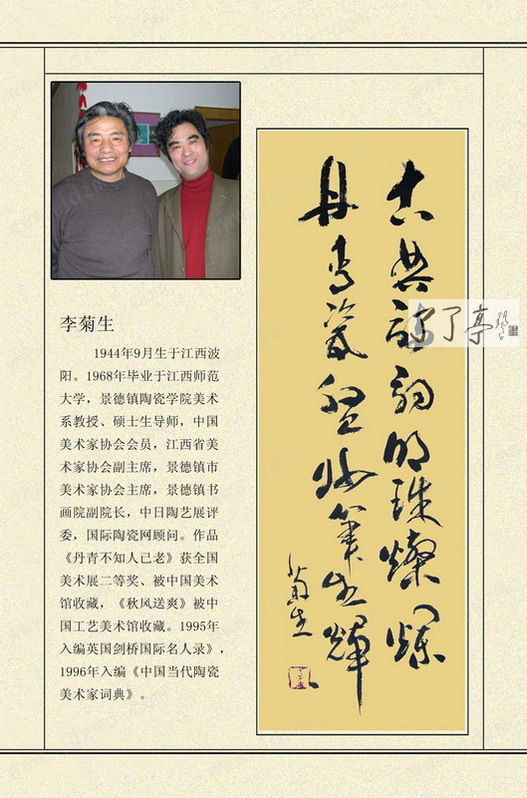 李菊生
1944年9月生于江西波
阳。1968年毕业于江西师范
大学，景德镇陶瓷学院美术
系教授、硕士生导师，中国
美术家协会会员，江西省美
术家协会副主席，景德镇市
美术家协会主席，景德镇书
画院副院长，中日陶艺展评
委，国际陶瓷网顾问。作品
《丹青不知人已老》获全国
美术展二等奖、被中国美术
馆收藏，《秋风送爽》被中
国工艺美术馆收藏。1995年
入编英国剑桥国际名人录》，
1996年入编《中国当代陶瓷
美术家词典》。
古典诗词明珠灿烂
丹青瓷
妙笔生辉
菊生
了亭